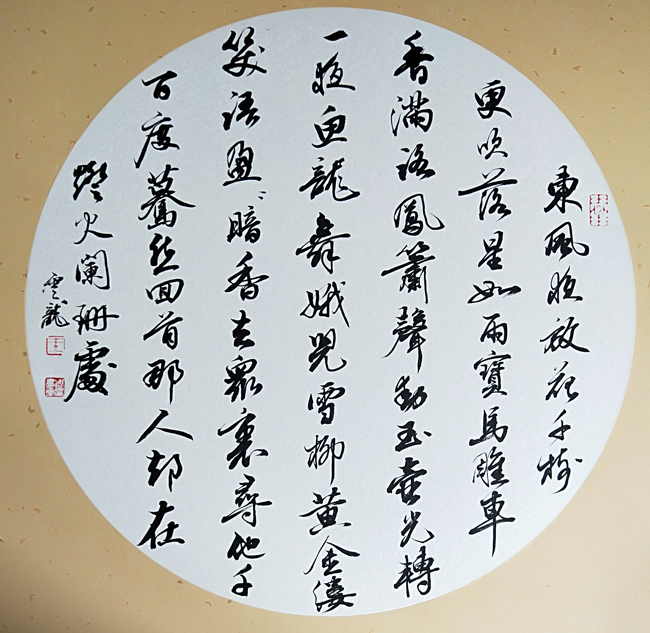 東風夜放花千樹
更吹落星如雨寶馬雕車
香滿路鳳簫聲動玉壺光轉
一夜魚龍舞蛾兒雪柳黃金縷
笑語盈〻暗香去眾裏尋他千
百度驀然回首那人却在
燈火闌珊處
雲龍